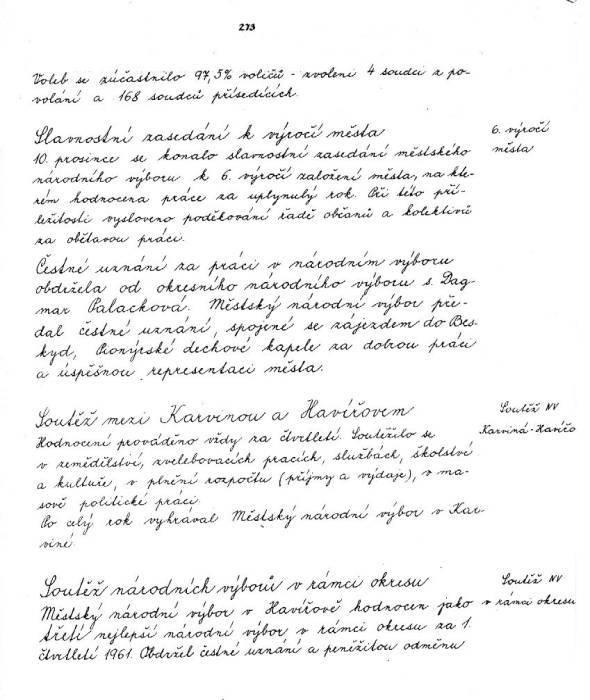 273
Voleb se zúčastnilo 97,5% voličů - zvoleni 4 soudci z po-
volání a 168 soudců přísedících.
Slavnostní zasedání k výročí města
6. výročí
města
10. prosince se konalo slavnostní zasedání městského
národního výboru k 6. výročí založení města, na kte-
rém hodnocena práce za uplynulý rok. Při této pří-
ležitosti vysloveno poděkování řadě občanů a kolektivů
za obětavou práci.
Čestné uznání za práci v národním výboru
obdržela od okresního národního výboru s. Dag-
mar Palacková. Městský národní výbor pře-
dal čestné uznání, spojené se zájezdem do Bes-
kyd, Pionýrské dechové kapele za dobrou práci
a úspěšnou representaci města.
Soutěž mezi Karvinou a Havířovem
Soutěž NV
Karviná-Havířo
Hodnocení prováděno vždy za čtvrtletí. Soutěžilo se
v zemědělství, zvelebovacích pracích, službách, školství
a kultuře, v plnění rozpočtu (příjmy a výdaje), v ma-
sově politické práci.
Po celý rok vyhrával Městský národní výbor v Kar-
viné.
Soutěž národních výborů v rámci okresu
Soutěž NV
v rámci okresu
Městský národní výbor v Havířově hodnocen jako
třetí nejlepší národní výbor v rámci okresu za 1.
čtvrtletí 1961. Obdržel čestné uznání a peněžitou odměnu